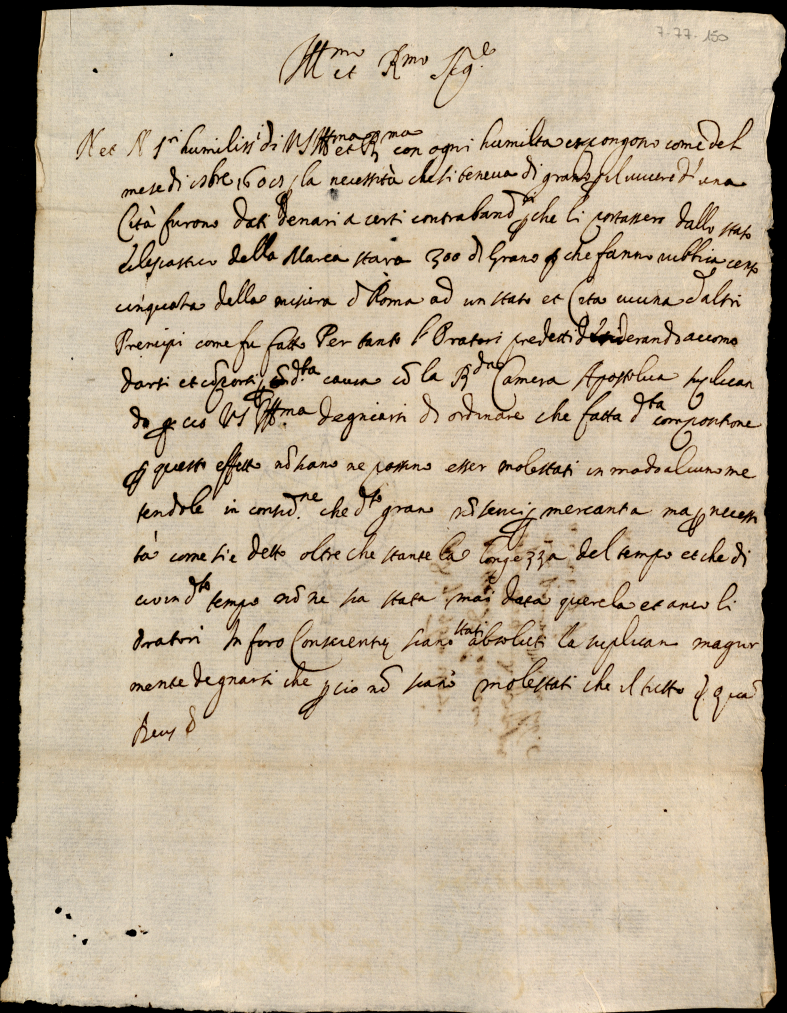 7-77-150
Ill.mo et R.mo Sig.e
N et N S.ri humiliss.i di VS Ill.ma et R.ma con ogni humilta espongono come del
mese di xbre la necessità che si teneva di grano p il vivere d'una
Cità furono dati denari a certi contraband.ri che li portassero dallo stato
Eclesiastico della Marca stara 300 di Grano che fanno rubbia cento
cinquāta della misura d Roma ad un stato et Cita vicina d altri
Principi come fu fatto Per tanto l Oratori predetti desiderando accomo
darsi et cōporsi p d.ta causa cō la R.da Camera Apostolica suplican
do p cio VS Ill.ma degniarsi di ordinare che fatta d.ta compositione
p questo effetto nō siano ne possino esser molestati in modo alcuno me
tendole in consid.ne che d.to grano nō p mercantia ma p necessi
tà come si è detto oltre che stante la longezza del tempo et che di
d.to tempo nō ne sia stata mai data querela et anco li
Oratori In foro Conscientiȩ siano stati absoluti la suplicano
mente degnarsi che p cio nō siano molestati che il tutto
Deus